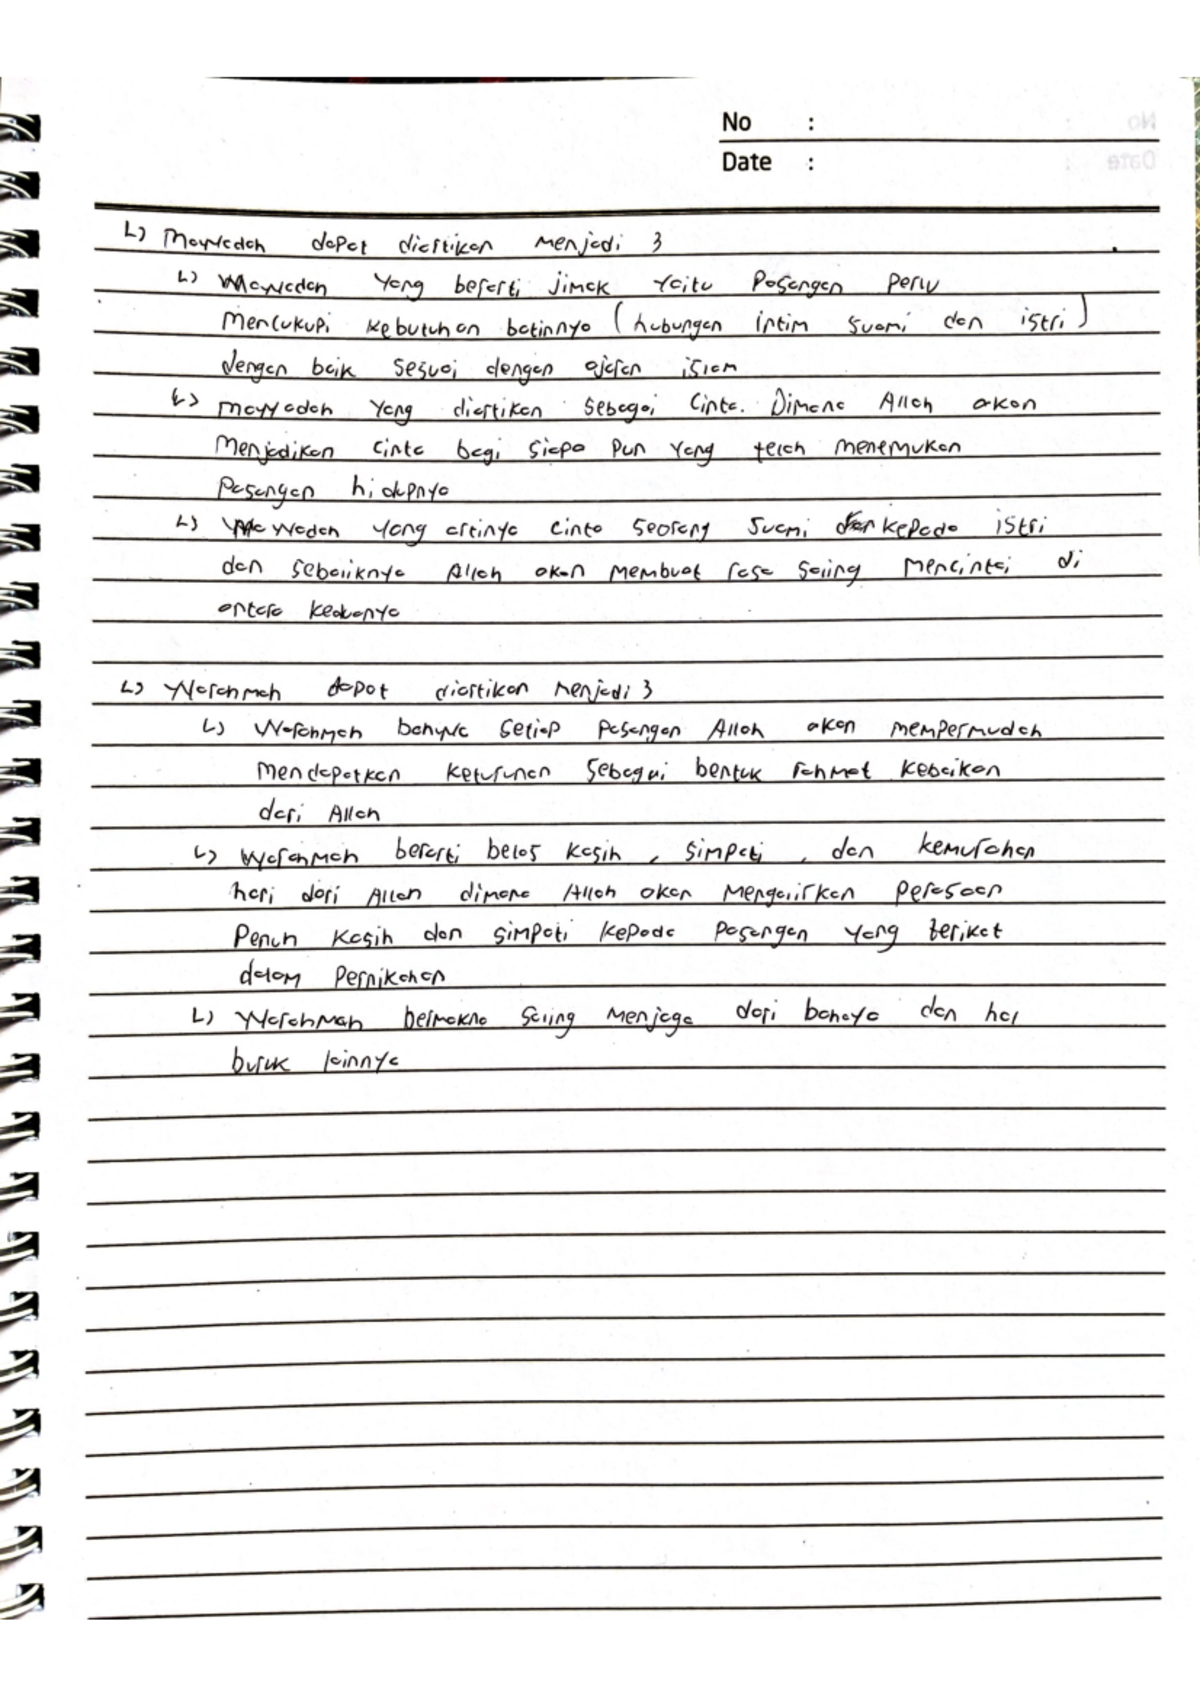 No :
Date :
L) Mawadah dapat diartikan menjadi 3
L) Mawadah yang berarti jimak yaitu Pasangan perlu
Mencukupi kebutuhan batinnya (hubungan intim suami dan istri)
dengan baik sesuai dengan ajaran islam
L) Mawadah yang diartikan sebagai Cinta. Dimana Allah akan
Menjadikan cinta bagi siapa pun yang telah menemukan
Pasangan hidupnya
L) Mawadah yang artinya cinta seorang suami kepada istri
dan sebaliknya Allah akan membuat rasa saling mencintai di
antara keduanya
L) Warahmah dapat diartikan menjadi 3
L) Warahmah bahwa setiap pasangan Allah akan mempermudah
Mendapatkan keturunan sebagai bentuk rahmat kebaikan
dari Allah
L) Warahmah berarti belas kasih, simpati, dan kemurahan
hari dari Allah dimana Allah akan Mengalirkan perasaan
Penuh kasih dan simpati kepada pasangan yang terikat
dalam Pernikahan
L) Warahmah bermakna saling menjaga dari bahaya dan hal
buruk lainnya